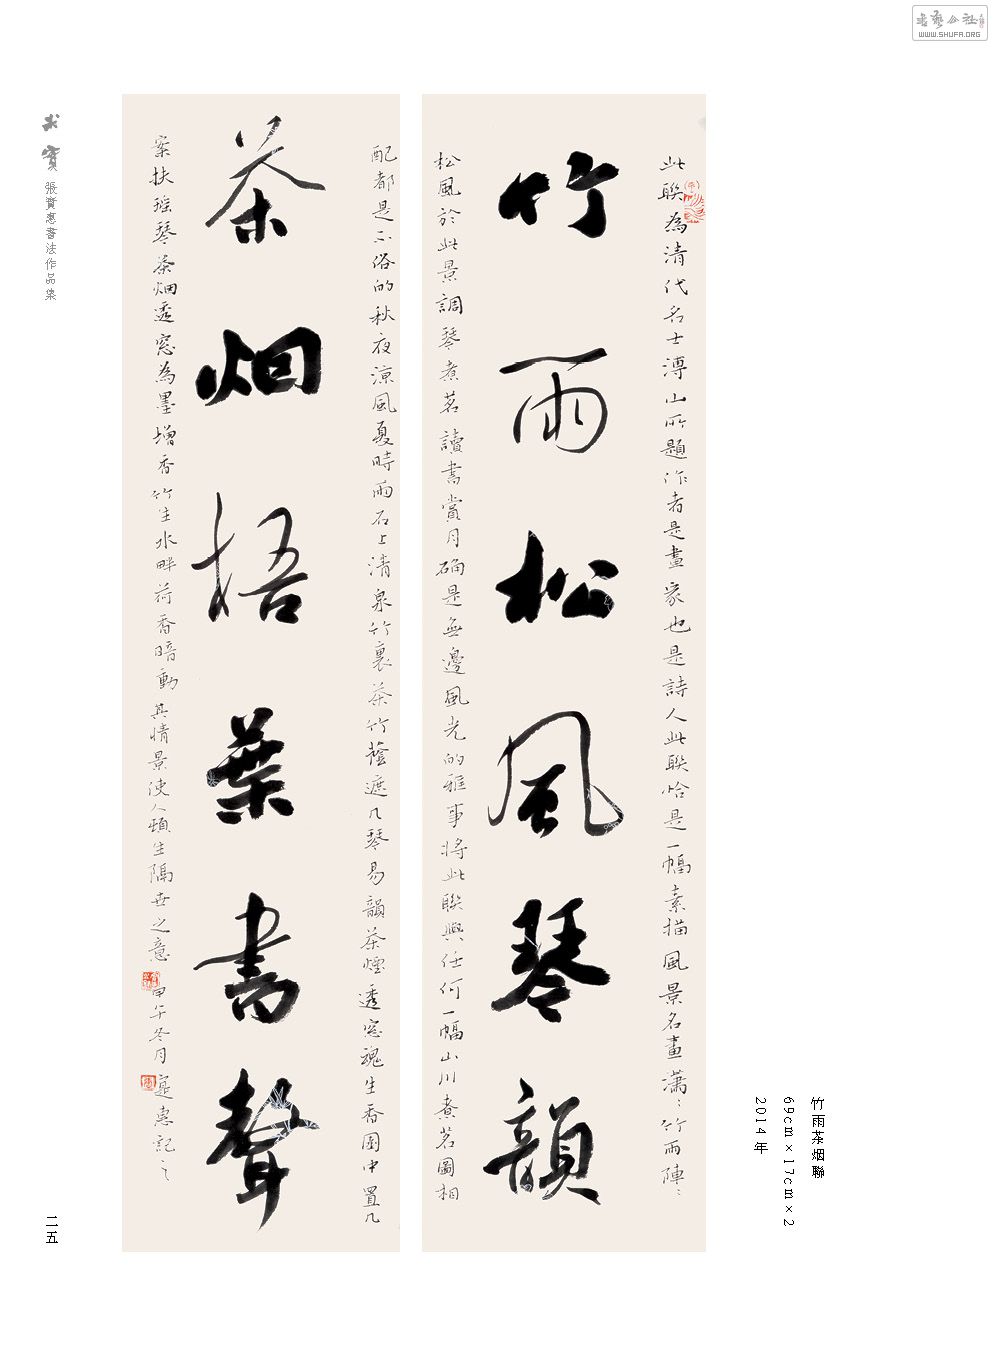 書藝公社
WWW.SHUFA.ORG
此聯為清代名士溥山所題作者是畫家也是詩人此聯恰是一幅素描風景名畫瀟〻竹雨陣〻
竹雨松風琴韻
松風於此景調琴煮茗讀書賞月确是無邊風光的雅事將此聯興任何一幅山川煮茗圖相
配都是不俗的秋夜涼風夏時雨石上清泉竹裏茶竹蔭遮几琴易韻茶煙透窓魂生香園中置几
茶烟梧葉書聲
案扶瑶琴茶烟透窓為墨增香竹生水畔荷香暗動其情景使人頓生隔世之意 甲午冬月寔惠記之
竹雨茶烟聯
69cm×17cm×2
2014年
求實 張實惠書法作品集
二五